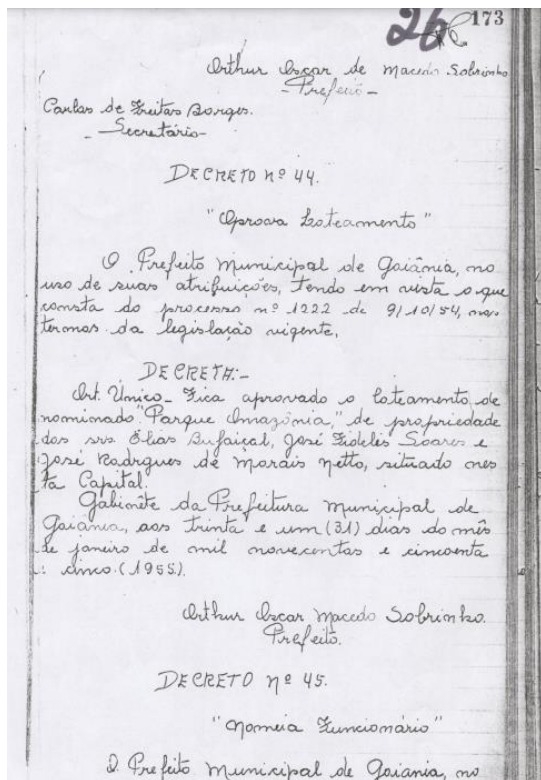 26 173
Arthur Oscar de Macedo Sobrinho
- Prefeito -
Carlos de Freitas Borges.
- Secretário -
DECRETO Nº 44.
"Aprova Loteamento"
O Prefeito Municipal de Goiânia, no
uso de suas atribuições, tendo em vista o que
consta do processo nº 1222 de 9/10/54, nos
termos da legislação vigente,
DECRETA:-
Art. Único - Fica aprovado o loteamento de
nominado "Parque Amazônia," de propriedade
dos srs Elias Bufaiçal, José Fidelis Soares e
José Rodrgues de Morais Netto, situado nes
ta Capital.
Gabinête da Prefeitura Municipal de
Goiânia, aos trinta e um (31) dias do mês
de janeiro de mil novecentos e cincoenta
e cinco. (1955).
Arthur Oscar Macedo Sobrinho.
Prefeito.
DECRETO Nº 45.
"Nomeia Funcionário"
O Prefeito Municipal de Goiania, no